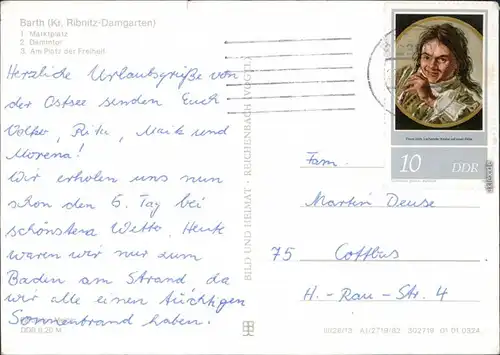 Barth (Kr. Ribnitz-Damgarten)
1. Marktplatz
2. Dammtor
3. Am Platz der Freiheit
Herzliche Urlaubsgrüße von
der Ostsee senden Euch
Volker, Rita, Maik und
Morena!
Wir erholen uns nun
schon den 5. Tag bei
schönstem Wetter. Heute
waren wir nur zum
Baden am Strand, da
wir alle einen tüchtigen
Sonnenbrand haben.
DDR 0,20 M
BILD UND HEIMAT · REICHENBACH (VOGTL)
10 DDR
Fam.
Martin Deuse
75 Cottbus
H.-Rau-Str. 4
01 01 0324